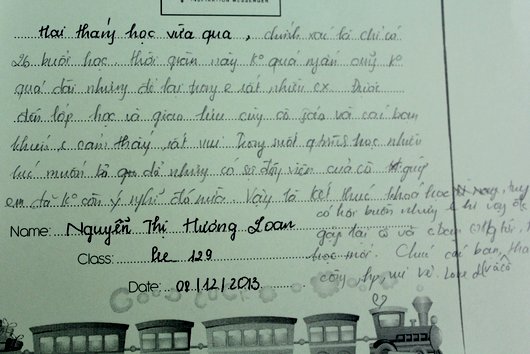 INSPIRATION MESSENGER
Hai tháng học vừa qua, chính xác là chỉ có
26 buổi học. Thời gian này k° quá ngắn cũng k°
quá dài nhưng để lại trong e rất nhiều cx. Được
đến lớp học và giao lưu cùng cô giáo và các bạn
khiến e cảm thấy rất vui. Trong suốt học nhiều
lúc muốn bỏ dở nhưng có sự động viên của cô
em đã k° còn ý nghĩ đó nữa. Vậy là kết thúc khoá học
có hơi buồn nhưng e hi vọng
Name: Nguyễn Thị Hương Loan gặp lại cô và
Class: Pre 129 học mới. Chúc các bạn
cô và Love
Date: 08/12/2013
Good luck